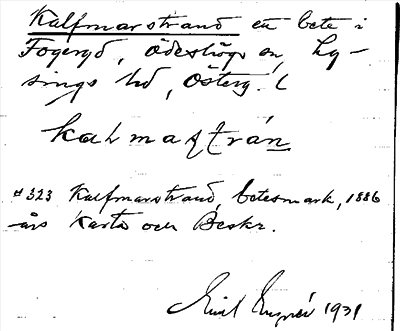 Kalfmarstrand en bete i
Fogeryd, Ödeshögs sn, Ly-
sings hd, Österg. l
kalmastrán
#323 Kalfmarstrand, betesmark, 1886
-års Karta och Beskr.
Emil 1931